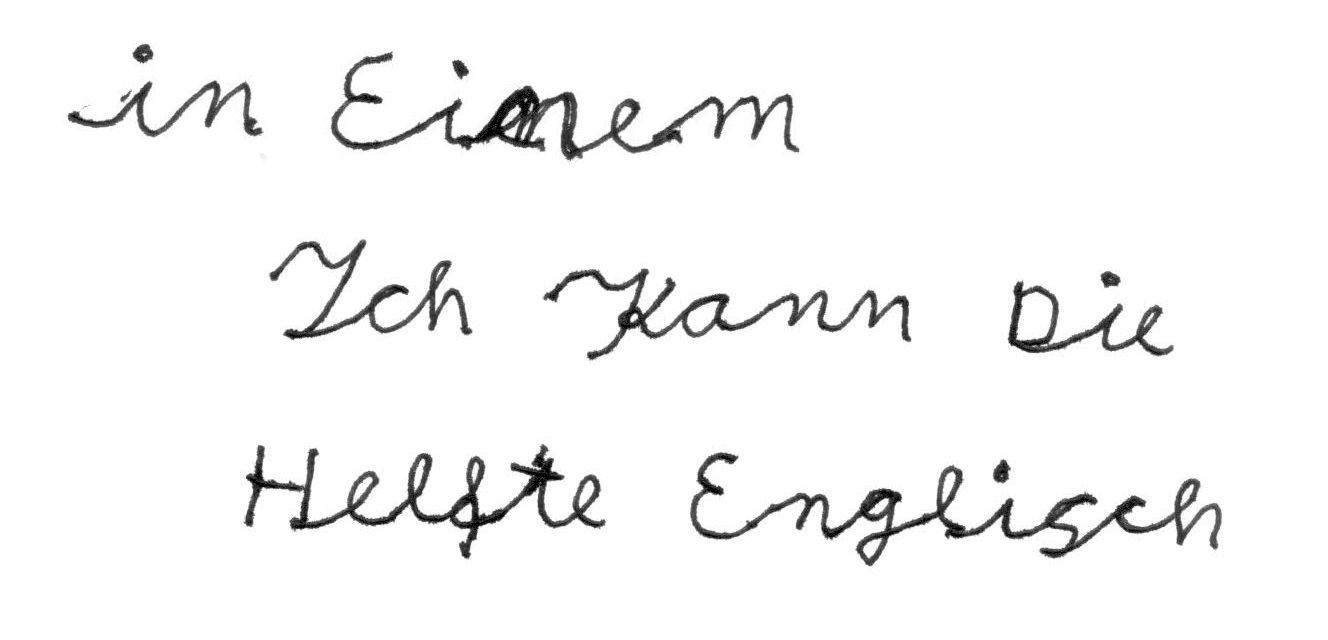 in Einem
Ich Kann Die
Helfte Englisch